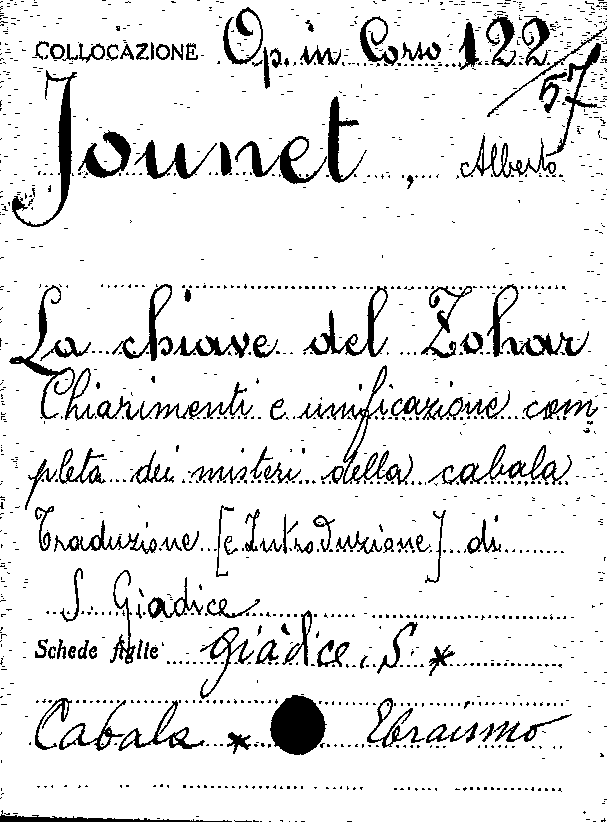 COLLOCAZIONE Op. in Corso 122/57
Jounet, Alberto
La chiave del Zohar
Chiarimenti e unificazione com
pleta dei misteri della cabala
Traduzione [e Introduzione] di
S. Giadice
Schede figlie Giadice, S. *
Cabala * Ebraismo